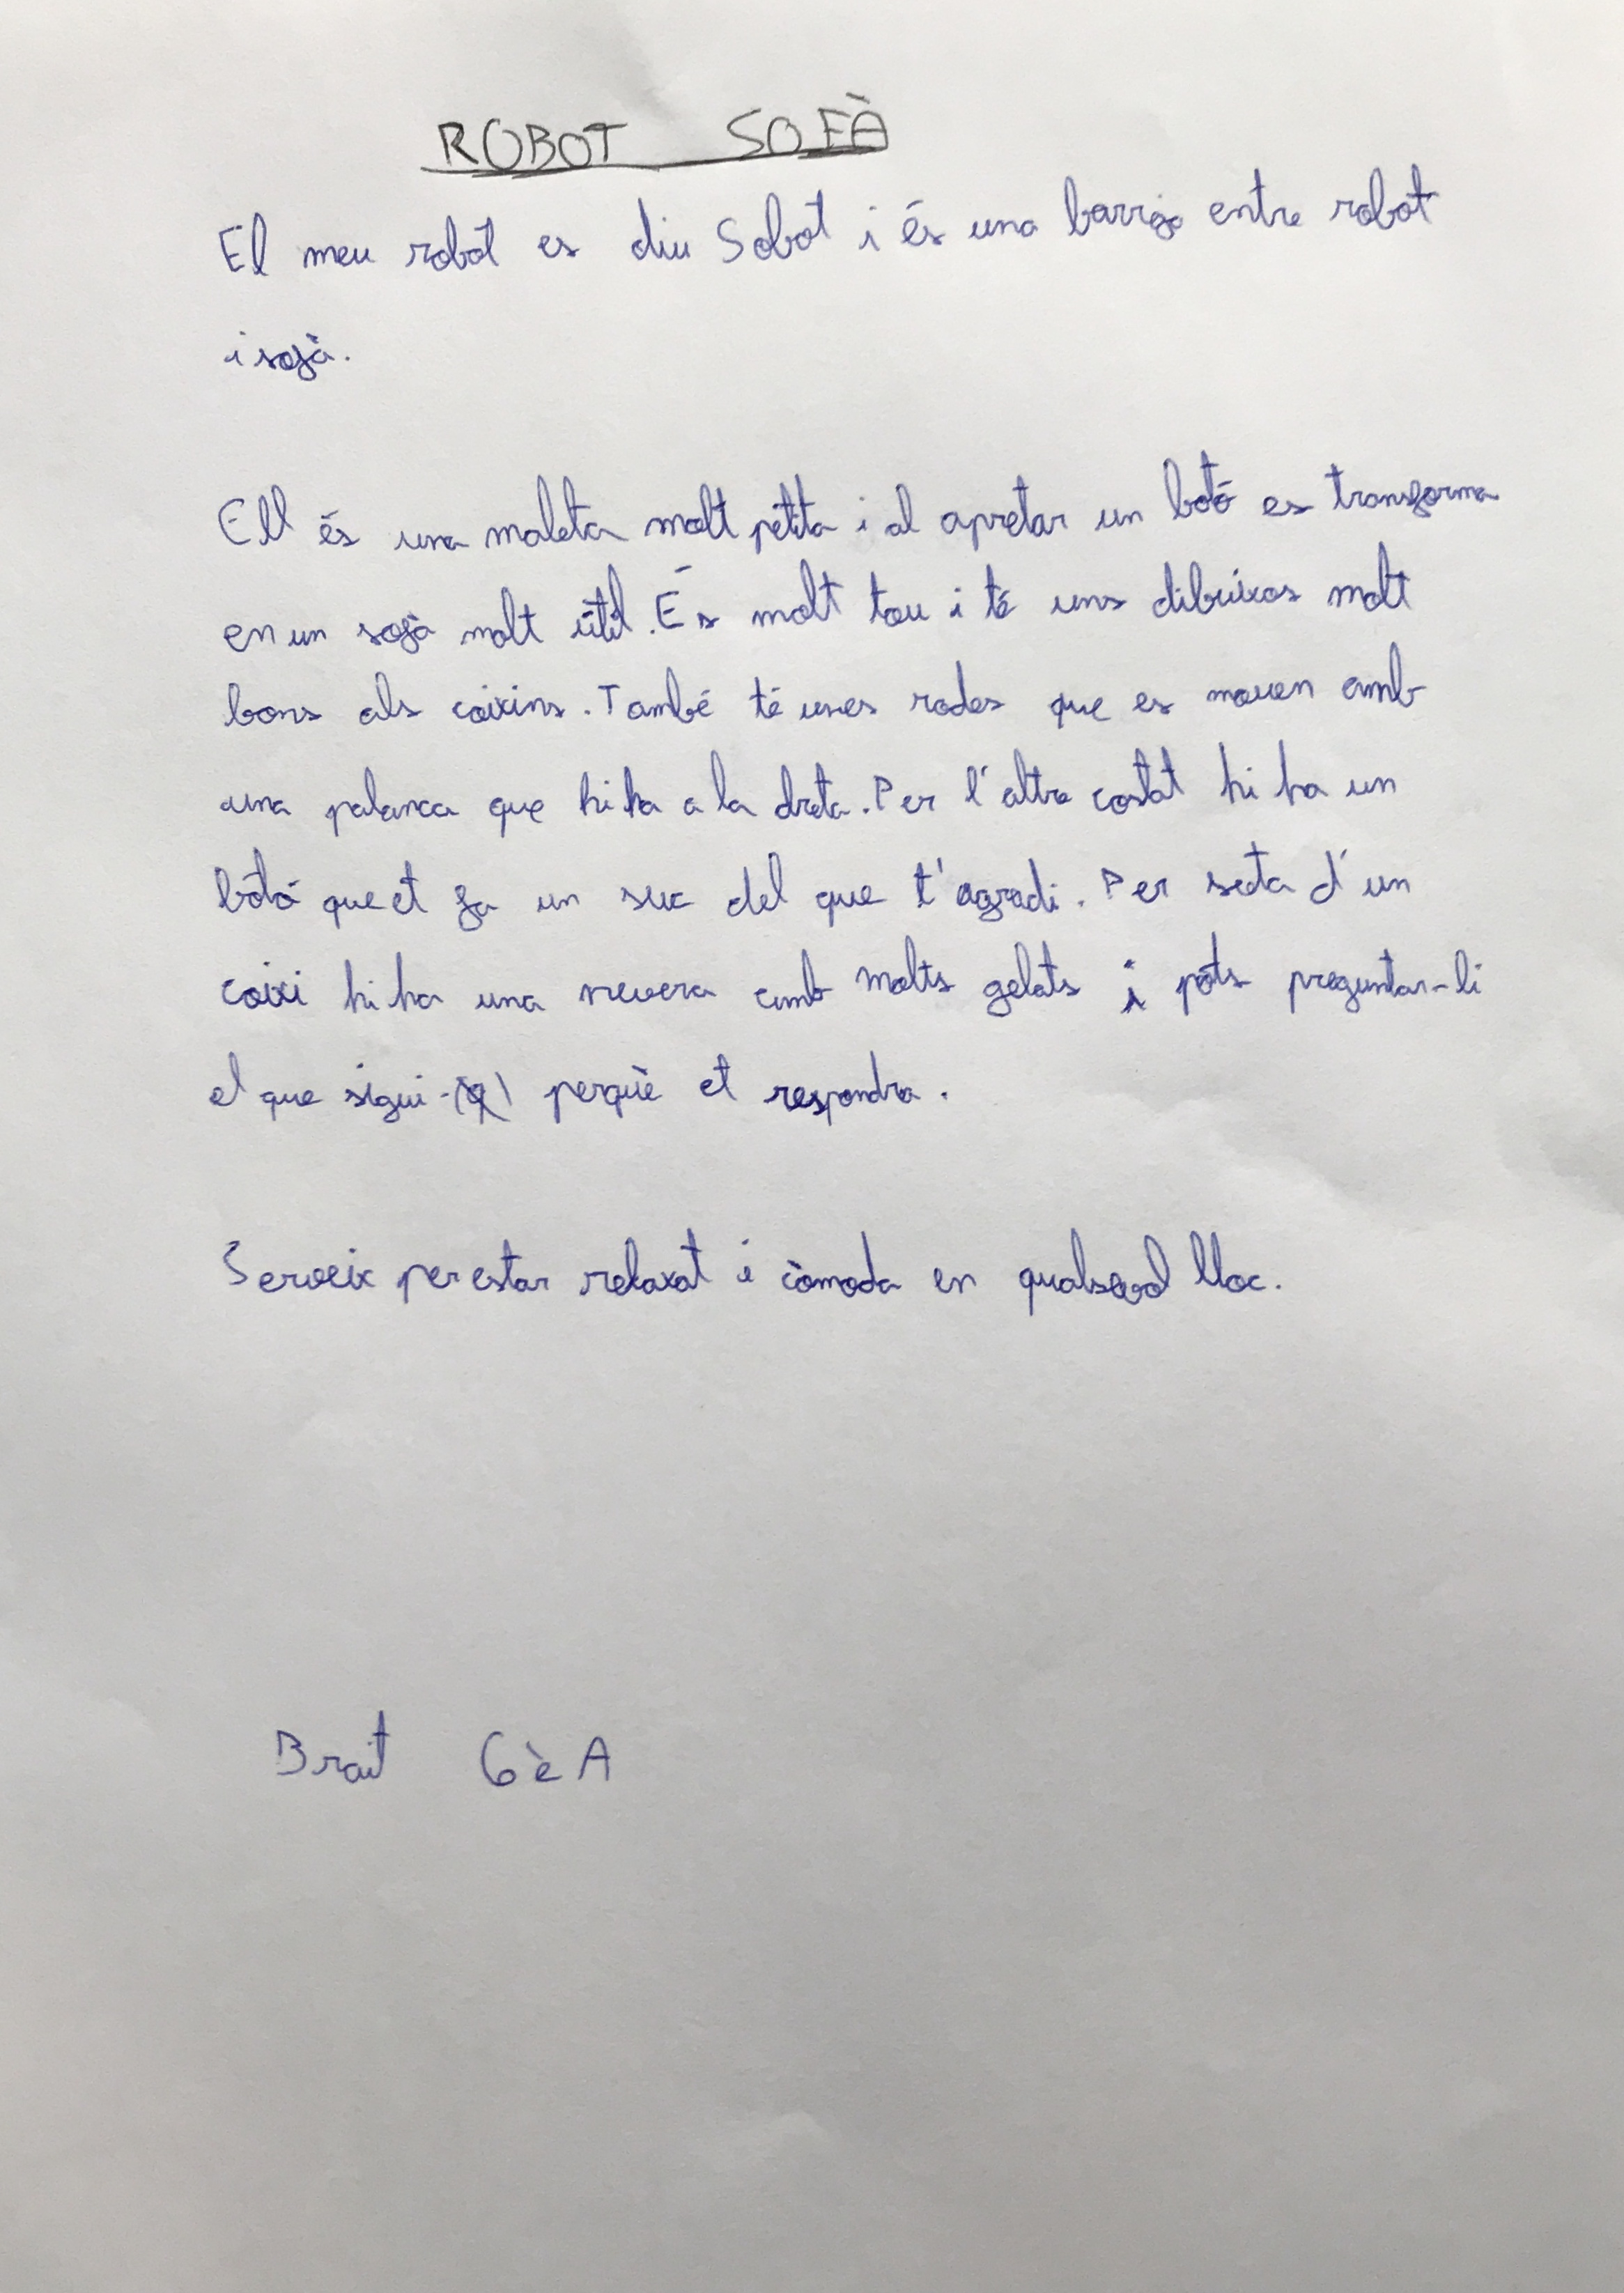 ROBOT SOFÀ
El meu robot es diu Sobot i és una barreja entre robot
i sofà.
Ell és una maleta molt petita i al apretar un botó es transforma
en un sofà molt útil. És molt tou i té uns dibuixos molt
bons als coixins. També té unes rodes que es mouen amb
una palanca que hi ha a la dreta. Per l'altre costat hi ha un
botó que et fa un suc del que t'agradi. Per sota d'un
coixí hi ha una nevera amb molts gelats i pots preguntar-li
el que sigui perquè et respondra.
Serveix per estar relaxat i còmoda en qualsevol lloc.
Brait 6è A